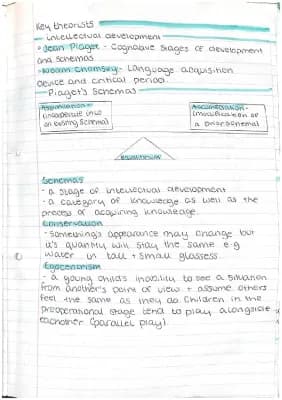 Key theorists
- intellectual development
- Jean Piaget - Cognative stages of development
and schemas
- Noam Chomsky - Language acquisition
device and critical period.
- Piaget's Schemas
Assimilation -
(incorperate into
an existing schema)
Accomodation -
(modification of
a prior schema)
equilibrium
Schemas
- a stage of intellectual development
- a category of knowledge as well as the
process of acquiring knowledge.
Conservation
- something's appearance may change but
it's quantity will stay the same e.g
water in tall + small glasses
Egocentrism
- a young child's inability to see a situation
from another's point of view + assume others
feel the same as they do. Children in the
preoperational stage tend to play alongside
eachother (parallel play).